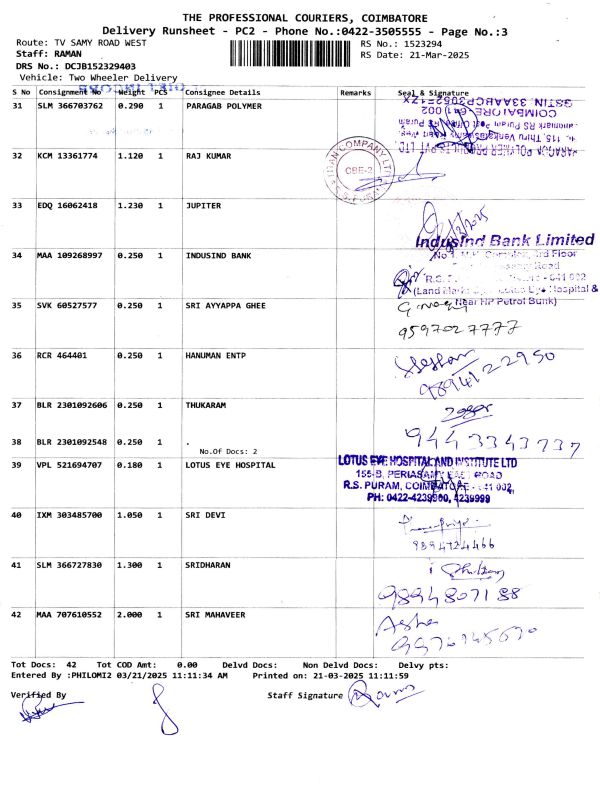 THE PROFESSIONAL COURIERS, COIMBATORE
Delivery Runsheet - PC2 - Phone No.:0422-3505555 - Page No.:3
Route: TV SAMY ROAD WEST RS No.: 1523294
Staff: RAMAN RS Date: 21-Mar-2025
DRS No.: DCJB152329403
Vehicle: Two Wheeler Delivery
S No Consignment No Weight PCS Consignee Details Remarks Seal & Signature
31 SLM 366703762 0.290 1 PARAGAB POLYMER
GSTIN 33AABCP3052E1ZX
COIMBATORE-641 002
32 KCM 13361774 1.120 1 RAJ KUMAR
TITAN COMPANY LTD
CBE-2
R.S. PURAM
33 EDQ 16062418 1.230 1 JUPITER
34 MAA 109268997 0.250 1 INDUSIND BANK
IndusInd Bank Limited
3rd Floor
Road
R.S.
(Land Mark Eye Hospital &
Near HP Petrol Bunk)
35 SVK 60527577 0.250 1 SRI AYYAPPA GHEE
9597027777
36 RCR 464401 0.250 1 HANUMAN ENTP
9894122950
37 BLR 2301092606 0.250 1 THUKARAM
38 BLR 2301092548 0.250 1 .
No.Of Docs: 2
9443343737
39 VPL 521694707 0.180 1 LOTUS EYE HOSPITAL
LOTUS EYE HOSPITAL AND INSTITUTE LTD
155-B, PERIASAMY EAST ROAD
R.S. PURAM, COIMBATORE - 641 002.
PH: 0422-4239900, 4239999
40 IXM 303485700 1.050 1 SRI DEVI
9894724466
41 SLM 366727830 1.300 1 SRIDHARAN
9894807188
42 MAA 707610552 2.000 1 SRI MAHAVEER
Tot Docs: 42 Tot COD Amt: 0.00 Delvd Docs: Non Delvd Docs: Delvy pts:
Entered By :PHILOMI2 03/21/2025 11:11:34 AM Printed on: 21-03-2025 11:11:59
Verified By Staff Signature